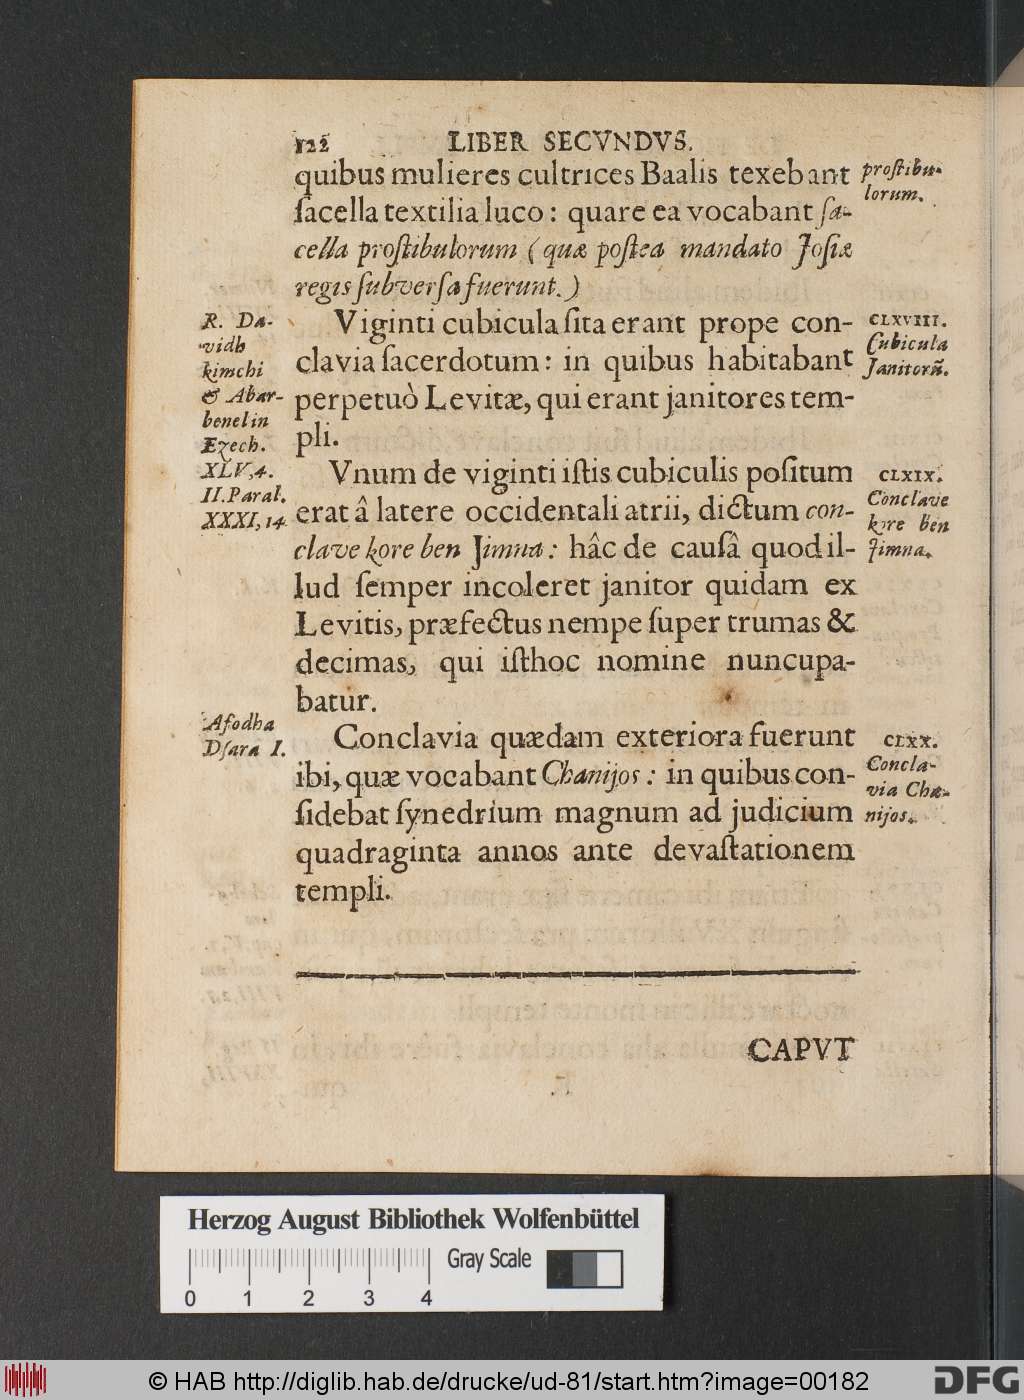 122 LIBER SECVNDVS.
quibus mulieres cultrices Baalis texebant
ſacella textilia luco: quare ea vocabant ſa-
cella proſtibulorum (quæ poſtea mandato Joſiæ
regis ſubverſa fuerunt.)
proſtibu-
lorum.
Viginti cubicula ſita erant prope con-
clavia ſacerdotum: in quibus habitabant
perpetuò Levitæ, qui erant janitores tem-
pli.
R. Da-
vidh
kimchi
& Abar-
benel in
Ezech.
XLV,4.
II.Paral.
XXXI,14
CLXVIII.
Cubicula
Janitorũ.
Vnum de viginti iſtis cubiculis poſitum
erat â latere occidentali atrii, dictum con-
clave kore ben Jimna: hâc de cauſâ quod il-
lud ſemper incoleret janitor quidam ex
Levitis, præfectus nempe ſuper trumas &
decimas, qui iſthoc nomine nuncupa-
batur.
CLXIX.
Conclave
kore ben
Jimna.
Conclavia quædam exteriora fuerunt
ibi, quæ vocabant Chanijos: in quibus con-
ſidebat ſynedrium magnum ad judicium
quadraginta annos ante devaſtationem
templi.
Afodha
Dſara I.
CLXX.
Concla-
via Cha-
nijos.
CAPVT
Herzog August Bibliothek Wolfenbüttel
Gray Scale
0 1 2 3 4
© HAB http://diglib.hab.de/drucke/ud-81/start.htm?image=00182
DFG